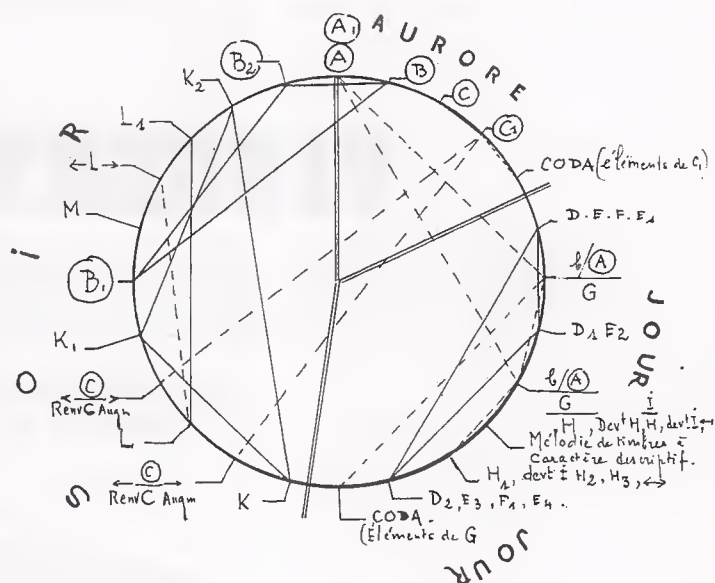 A₁
A
AURORE
B
C
C₁
CODA (éléments de C₁)
D. E. F. E₁
b/A
G
D₁ E₂
JOUR
b/A
G
H, Devt H, H, devt İ, ↔
Mélodie de timbres à
caractère descriptif.
H₁, devt İ H₂, H₃, ↔
D₂, E₃, F₁, E₄.
JOUR
CODA.
(Éléments de G
K
C
Renv C Augm
L
C
Renv C Augm
K₁
B₁
M
←L→
L₁
K₂
B₂
SOiR